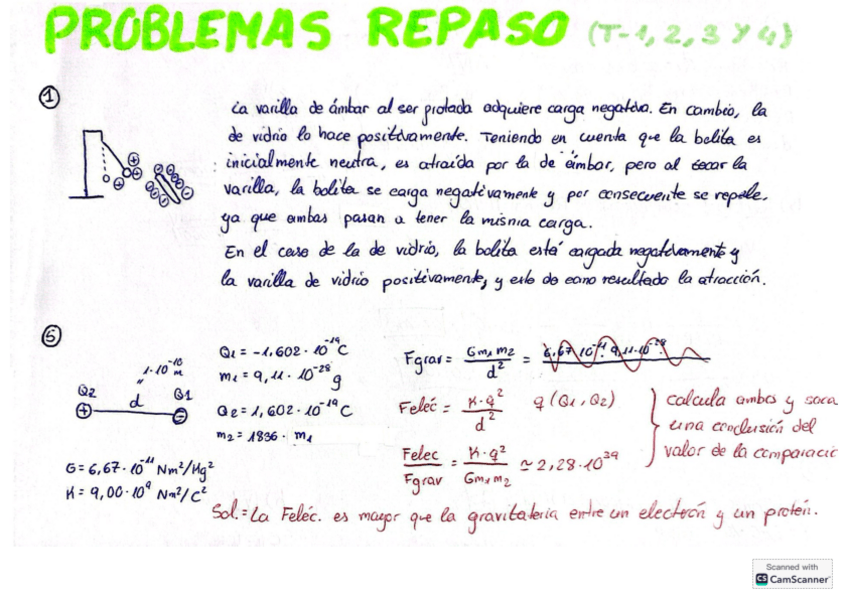 PROBLEMAS REPASO (T-1, 2, 3 y 4)
①
La varilla de ámbar al ser frotada adquiere carga negativa. En cambio, la
de vidrio lo hace positivamente. Teniendo en cuenta que la bolita es
inicialmente neutra, es atraída por la de ámbar, pero al tocar la
varilla, la bolita se carga negativamente y por consecuente se repele.
ya que ambas pasan a tener la misma carga.
En el caso de la de vidrio, la bolita está cargada negativamente y
la varilla de vidrio positivamente, y esto da como resultado la atracción.
⑤
1·10⁻¹⁰ m
Q2 d Q1
G = 6,67·10⁻¹¹ Nm²/Kg²
K = 9,00·10⁹ Nm²/C²
Q1 = -1,602·10⁻¹⁹ C
m1 = 9,11·10⁻²⁸ g
Q2 = 1,602·10⁻¹⁹ C
m2 = 1836· m1
Fgrav = Gm1m2/d² =
Feléc = K·q²/d² q (Q1, Q2)
Felec/Fgrav = K·q²/Gm1m2 ≃ 2,28·10³⁹
calcula ambos y saca
una conclusión del
valor de la comparació
Sol. = La Feléc. es mayor que la gravitatoria entre un electrón y un protón.
Scanned with
CS CamScanner